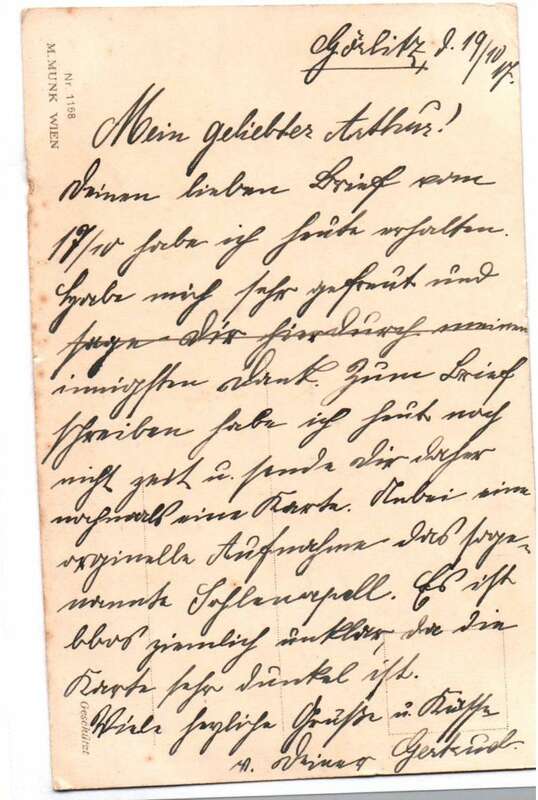 Nr. 1168
M. MUNK WIEN
Görlitz, d. 19/10 17.
Mein geliebter Arthur!
Deinen lieben Brief vom
17/10 habe ich heute erhalten.
Habe mich sehr gefreut und
sage Dir hierdurch meinen
innigsten Dank. Zum Brief
schreiben habe ich heut noch
nicht zeit u. sende Dir daher
nochmals eine Karte. Anbei eine
orginelle Aufnahme das soge-
nannte Sohlenapell. Es ist
blos ziemlich unklar, da die
Karte sehr dunkel ist.
Viele herzliche Grüße u. Küsse
v. Deiner Gertrud
Geschützt